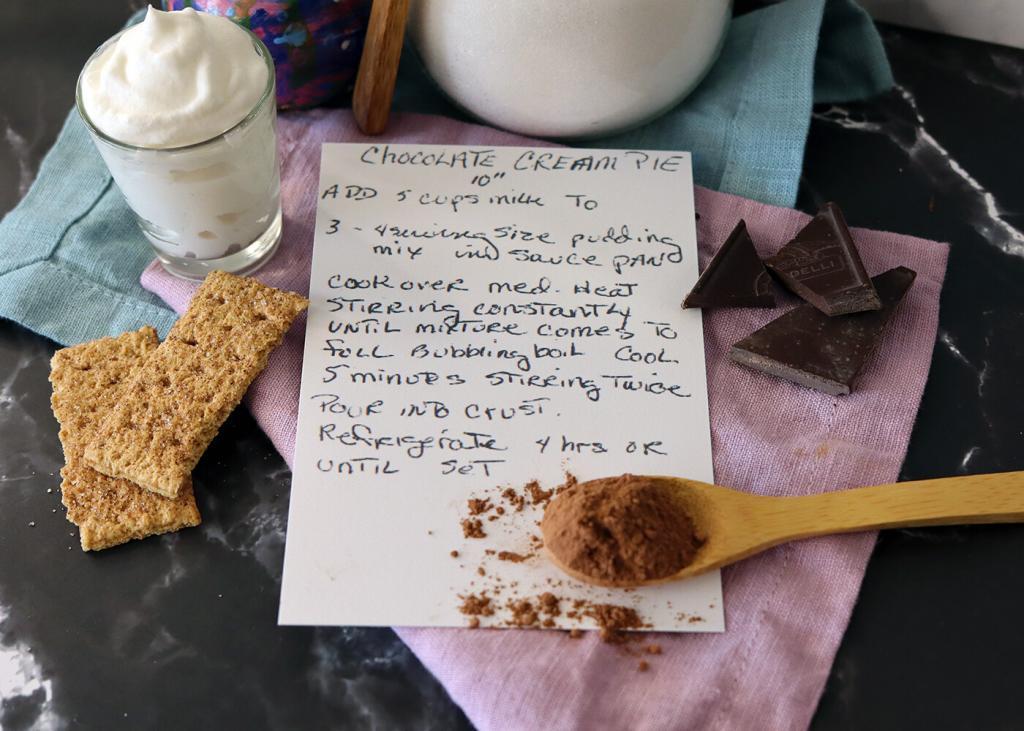 CHOCOLATE CREAM PIE
10"
ADD 5 cups milk TO
3 - 4 serving size pudding
mix in sauce pan
COOK over med. Heat
STIRRING CONSTANTLY
UNTIL mixTURE comes TO
full Bubbling boil COOL
5 minutes STIRRING Twice
POUR INTO CRUST.
Refrigerate 4 hrs OR
UNTIL SET
DELLI